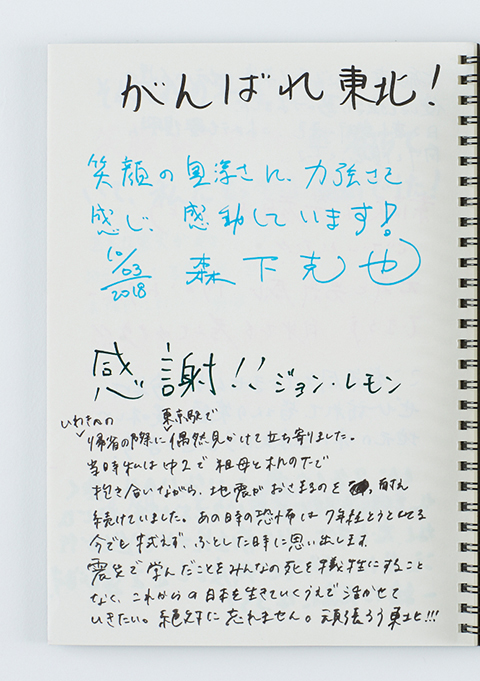 がんばれ東北!
笑顔の奥深さに、力強さを
感じ、感動しています!
10/03
2018
森下克也
感謝!! ジョン・レモン
いわきへの 東京駅で
帰省の際に偶然見かけて立ち寄りました。
当時私は中2で祖母と机の下で
抱き合いながら、地震がおさまるのを 耐え
続けていました。あの日の恐怖は7年経とうとしてる
今でも拭えず、ふとした時に思い出します
震災で学んだことをみんなの死を犠牲にすること
なく、これからの日本を生きていくうえで活かせて
いきたい。絶対に忘れません。頑張ろう東北!!!